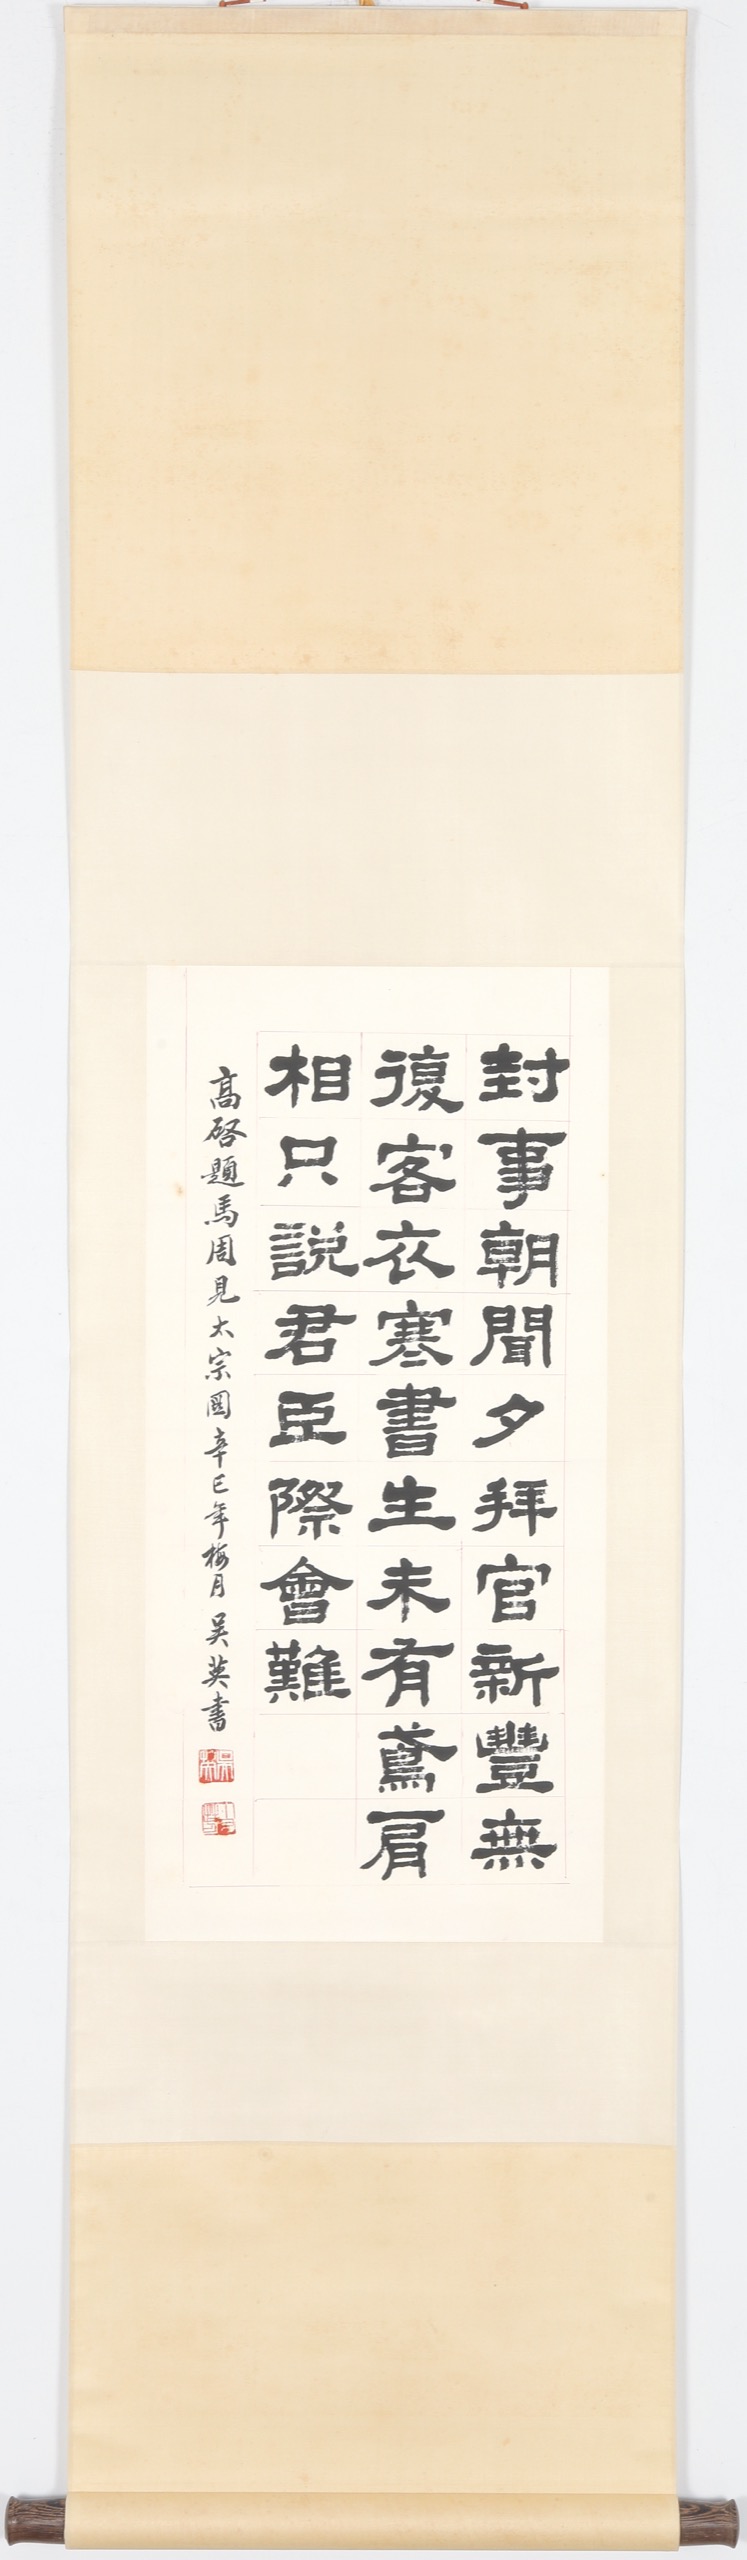 封事朝聞夕拜官新豐無
復客衣寒書生未有鳶肩
相只説君臣際會難
高啓題馬周見太宗圖辛巳年梅月吳英書